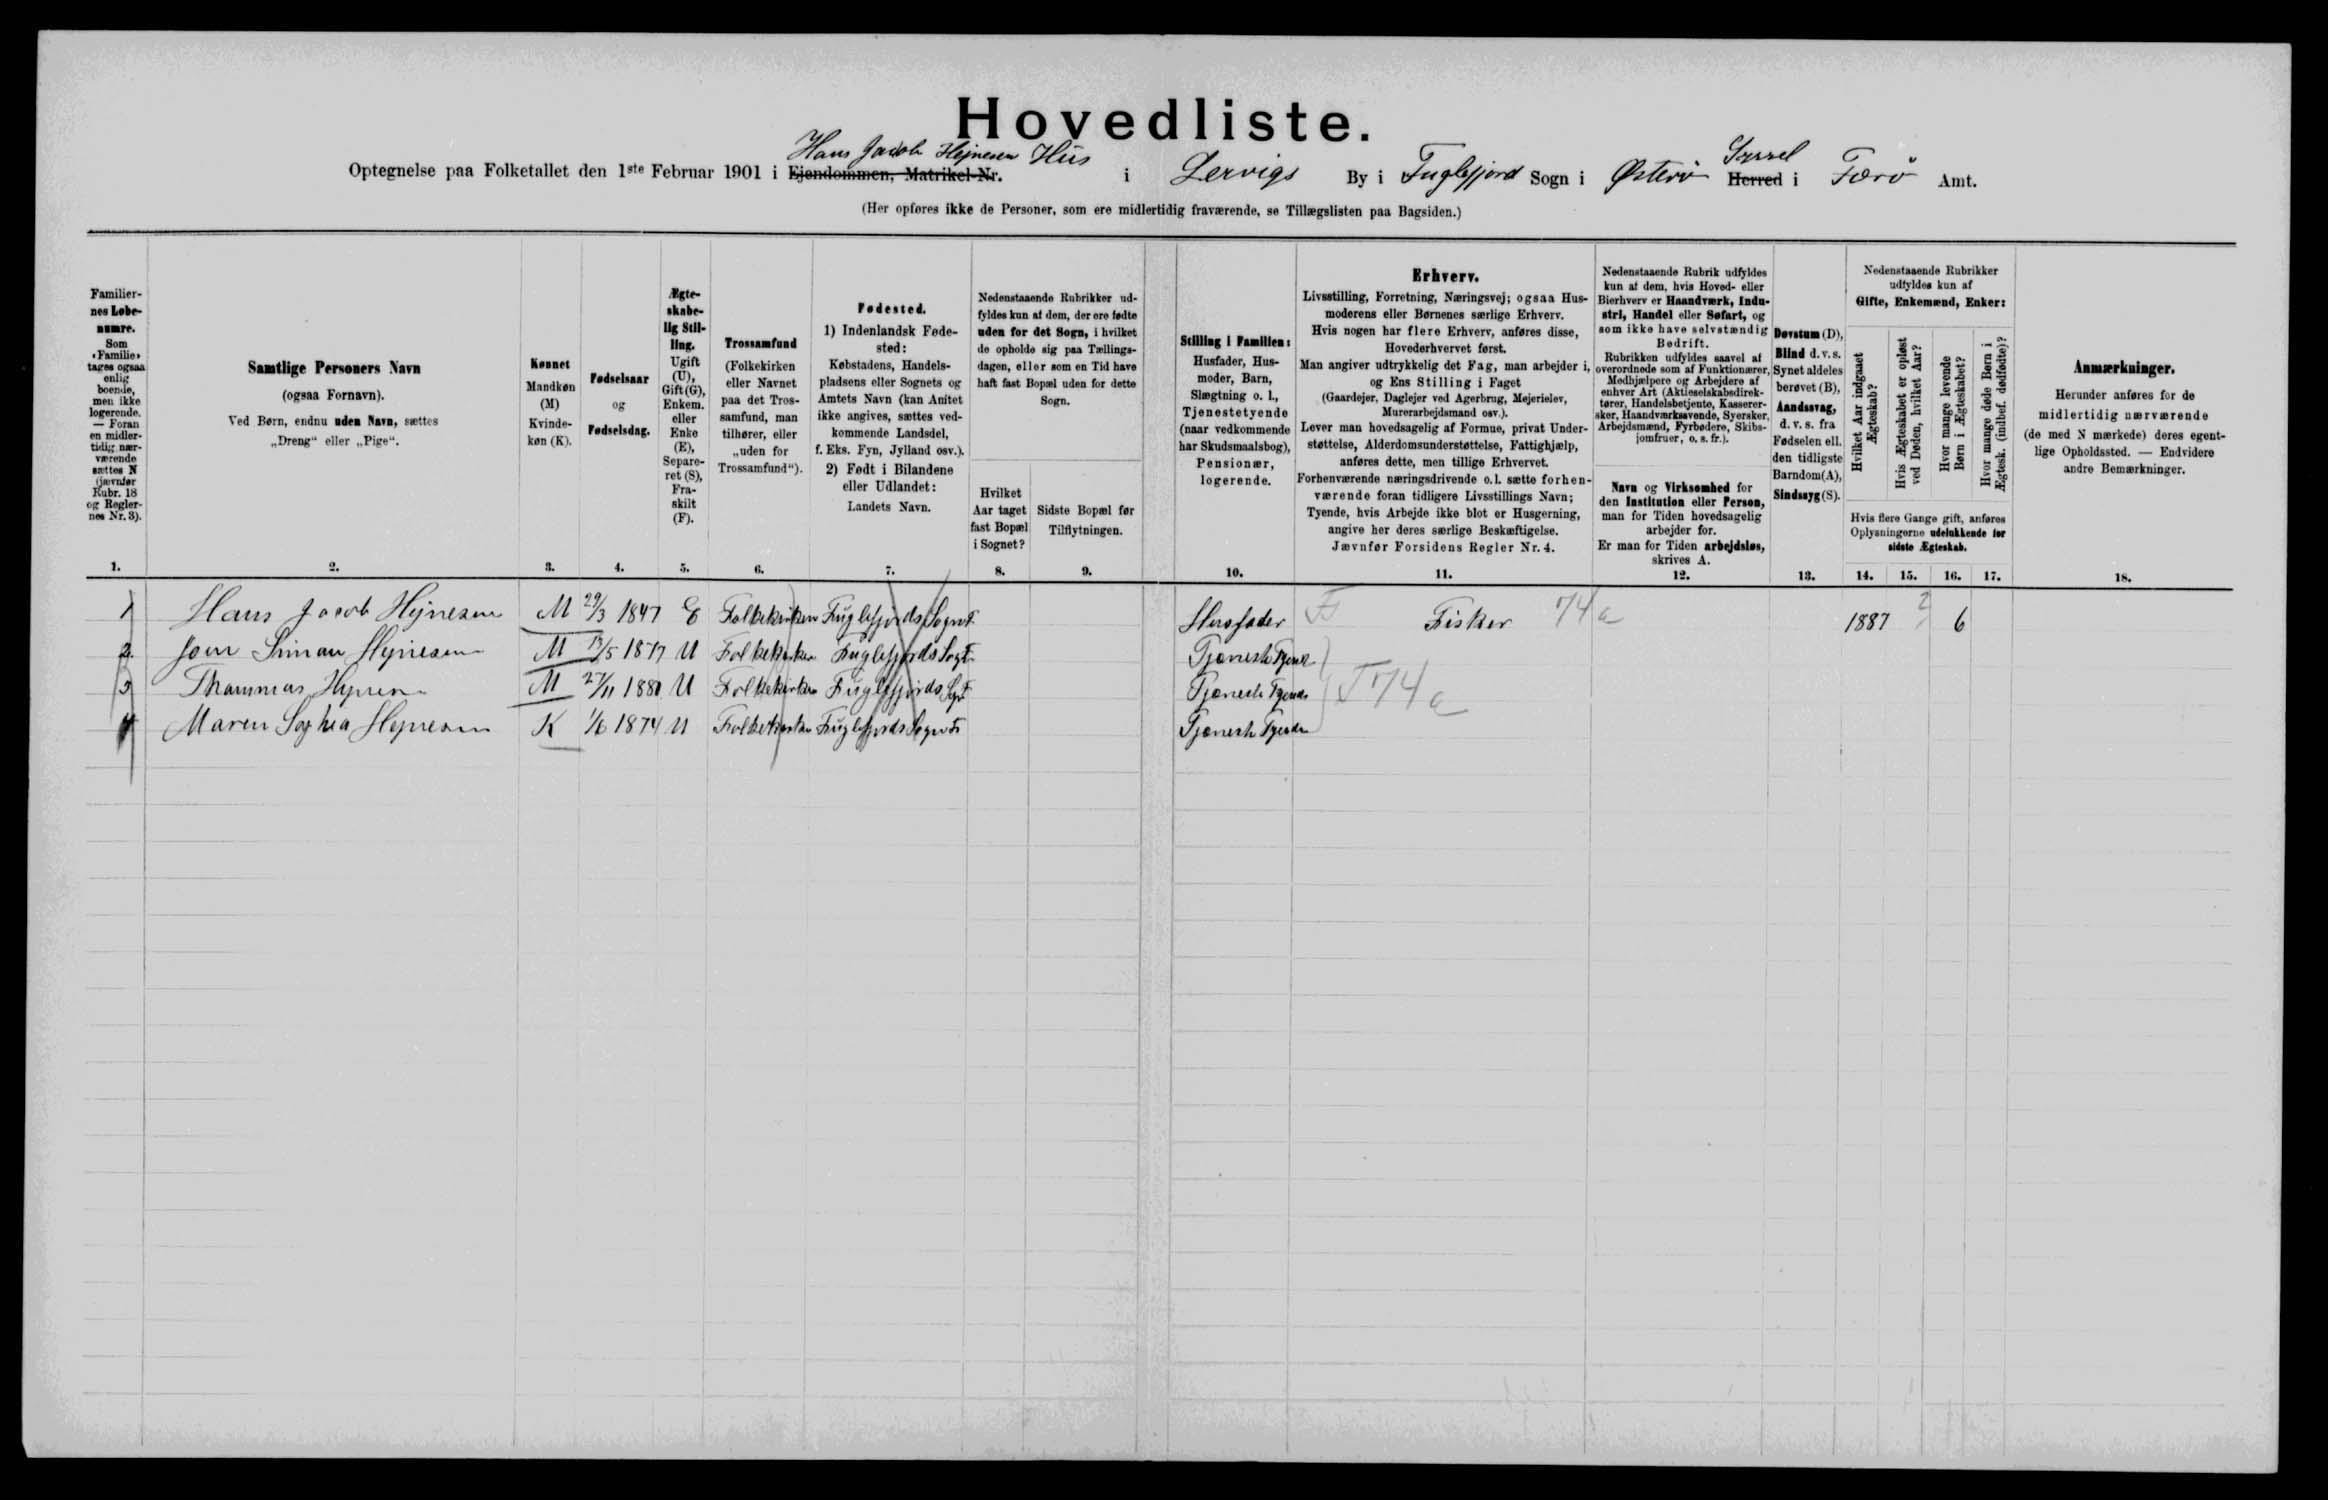 Hovedliste.
Hans Jacob Hejnesen Hus
Optegnelse paa Folketallet den 1ste Februar 1901 i Ejendommen, Matrikel-Nr. i Lervigs By i Fuglefjord Sogn i Østerö Herred i Færö Amt.
Syssel
(Her opføres ikke de Personer, som ere midlertidig fraværende, se Tillægslisten paa Bagsiden.)
Familier-
nes Løbe-
numre.
Som
«Familie»
tages ogsaa
enlig
boende,
men ikke
logerende.
— Foran
en midler-
tidig nær-
værende
sættes N
(jævnfør
Rubr. 18
og Regler-
nes Nr. 3).
1.
Samtlige Personers Navn
(ogsaa Fornavn).
Ved Børn, endnu uden Navn, sættes
„Dreng“ eller „Pige“.
2.
Kønnet
Mandkøn
(M)
Kvinde-
køn (K).
3.
Fødselsaar
og
Fødselsdag.
4.
Ægte-
skabe-
lig Stil-
ling.
Ugift
(U),
Gift (G),
Enkem.
eller
Enke
(E),
Separe-
ret (S),
Fra-
skilt
(F).
5.
Trossamfund
(Folkekirken
eller Navnet
paa det Tros-
samfund, man
tilhører, eller
„uden for
Trossamfund“).
6.
Fødested.
1) Indenlandsk Føde-
sted:
Købstadens, Handels-
pladsens eller Sognets og
Amtets Navn (kan Amtet
ikke angives, sættes ved-
kommende Landsdel,
f. Eks. Fyn, Jylland osv.).
2) Født i Bilandene
eller Udlandet:
Landets Navn.
7.
Nedenstaaende Rubrikker ud-
fyldes kun af dem, der ere fødte
uden for det Sogn, i hvilket
de opholde sig paa Tællings-
dagen, eller som en Tid have
haft fast Bopæl uden for dette
Sogn.
Hvilket
Aar taget
fast Bopæl
i Sognet?
8.
Sidste Bopæl før
Tilflytningen.
9.
Stilling i Familien:
Husfader, Hus-
moder, Barn,
Slægtning o. l.,
Tjenestetyende
(naar vedkommende
har Skudsmaalsbog),
Pensionær,
logerende.
10.
Erhverv.
Livsstilling, Forretning, Næringsvej; ogsaa Hus-
moderens eller Børnenes særlige Erhverv.
Hvis nogen har flere Erhverv, anføres disse,
Hovederhvervet først.
Man angiver udtrykkelig det Fag, man arbejder i,
og Ens Stilling i Faget
(Gaardejer, Daglejer ved Agerbrug, Mejerielev,
Murerarbejdsmand osv.).
Lever man hovedsagelig af Formue, privat Under-
støttelse, Alderdomsunderstøttelse, Fattighjælp,
anføres dette, men tillige Erhvervet.
Forhenværende næringsdrivende o. l. sætte forhen-
værende foran tidligere Livsstillings Navn;
Tyende, hvis Arbejde ikke blot er Husgerning,
angive her deres særlige Beskæftigelse.
Jævnfør Forsidens Regler Nr. 4.
11.
Nedenstaaende Rubrik udfyldes
kun af dem, hvis Hoved- eller
Bierhverv er Haandværk, Indu-
stri, Handel eller Søfart, og
som ikke have selvstændig
Bedrift.
Rubrikken udfyldes saavel af
overordnede som af Funktionærer,
Medhjælpere og Arbejdere af
enhver Art (Aktieselskabsdirek-
tører, Handelsbetjente, Kasserer-
sker, Haandværkssvende, Syersker,
Arbejdsmænd, Fyrbødere, Skibs-
jomfruer, o. s. fr.).
Navn og Virksomhed for
den Institution eller Person,
man for Tiden hovedsagelig
arbejder for.
Er man for Tiden arbejdsløs,
skrives A.
12.
Døvstum (D),
Blind d. v. s.
Synet aldeles
berøvet (B),
Aandssvag,
d. v. s. fra
Fødselen ell.
den tidligste
Barndom (A),
Sindssyg (S).
13.
Nedenstaaende Rubrikker
udfyldes kun af
Gifte, Enkemænd, Enker:
Hvilket Aar indgaaet
Ægteskab?
Hvis Ægteskabet er opløst
ved Døden, hvilket Aar?
Hvor mange levende
Børn i Ægteskabet?
Hvor mange døde Børn i
Ægtesk. (indbef. dødfødte)?
Hvis flere Gange gift, anføres
Oplysningerne udelukkende for
sidste Ægteskab.
14. 15. 16. 17.
Anmærkninger.
Herunder anføres for de
midlertidig nærværende
(de med N mærkede) deres egent-
lige Opholdssted. — Endvidere
andre Bemærkninger.
18.
1 Hans Jacob Hejnesen M 29/3 1847 E Folkekirken Fuglefjords Sogn F. Husfader F Fisker 74 a 1887 ? 6
2 Simon Hejnesen M 13/5 1877 U Folkekirken Fuglefjords Sogn Tjeneste Tyende
3 Thommas Hejnesen M 27/11 1880 U Folkekirken Fuglefjords Tjeneste Tyende T 74 a
4 Maren Sophia Hejnesen K 1/6 1874 U Folkekirken Fuglefjords Sogn F. Tjeneste Tyende